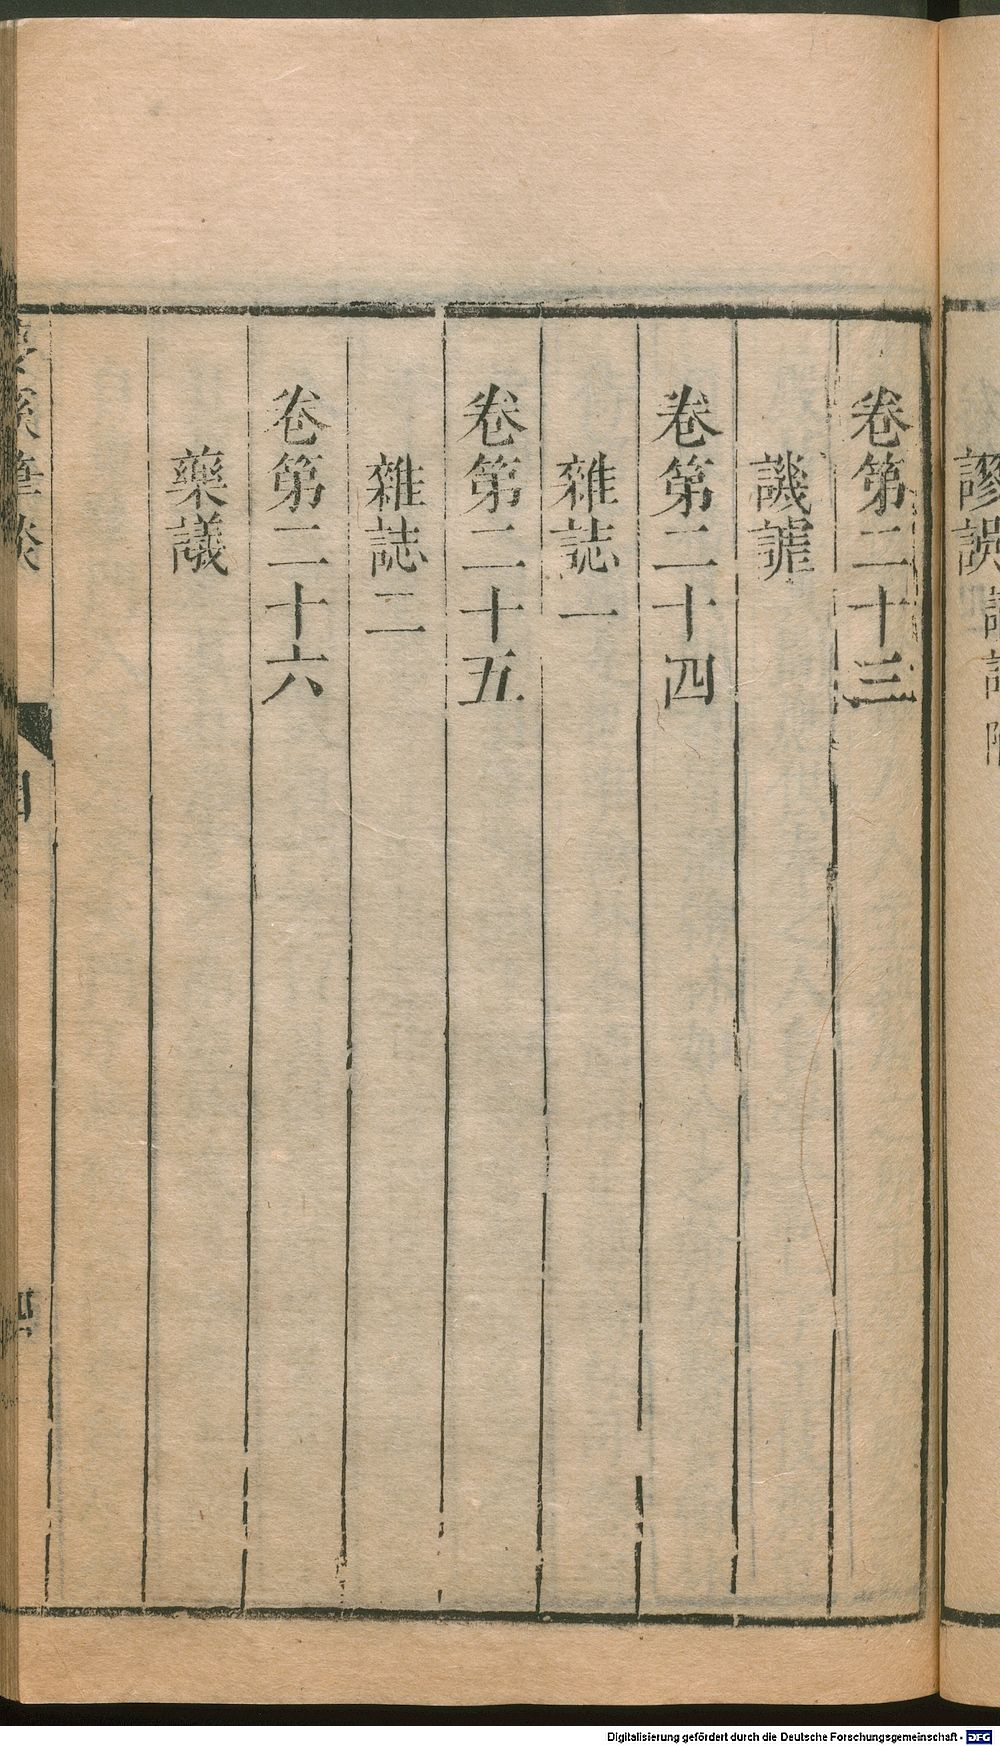 謬誤譎詐附
卷第二十三
譏謔
卷第二十四
雜誌一
卷第二十五
雜誌二
卷第二十六
藥議
夢溪筆談
目
四
Digitalisierung gefördert durch die Deutsche Forschungsgemeinschaft - DFG